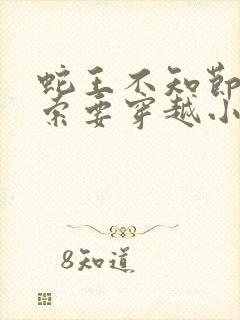 蛇王不知节
索要穿越小
8知道